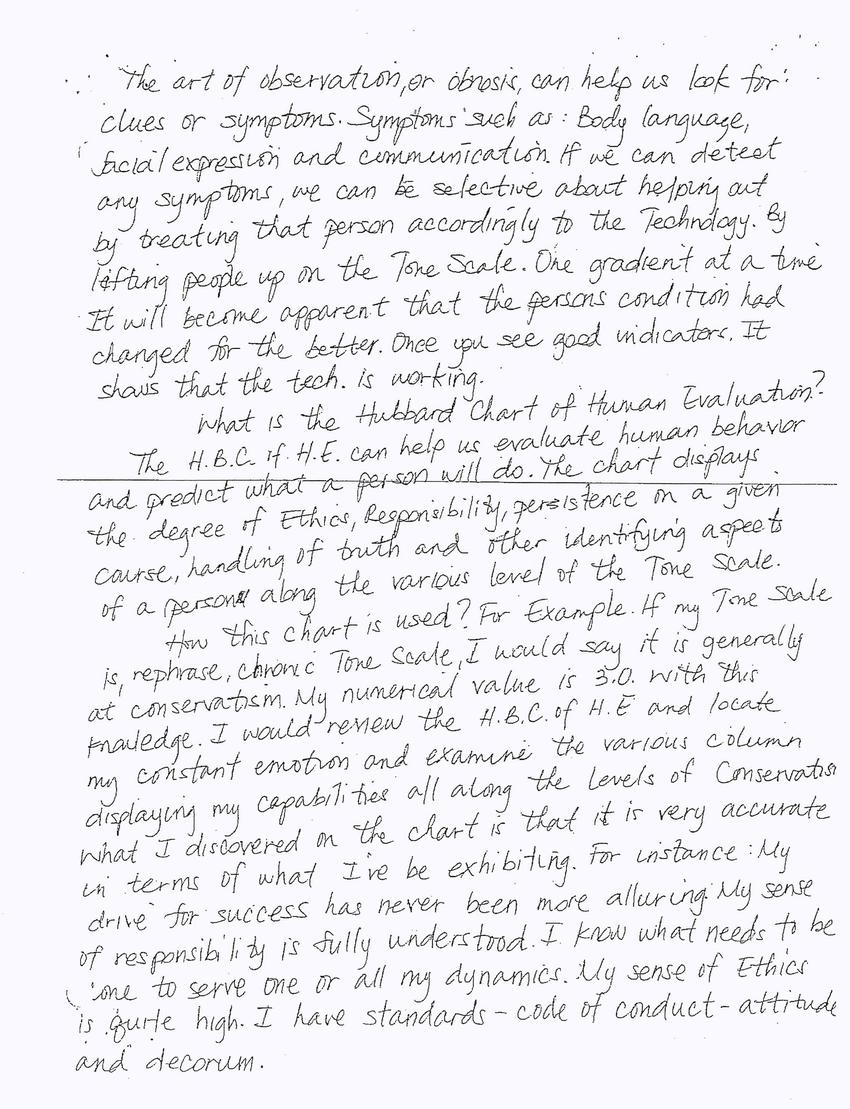 The art of observation, or obnosis, can help us look for:
clues or symptoms. Symptoms such as: Body language,
facial expression and communication. If we can detect
any symptoms, we can be selective about helping out
by treating that person accordingly to the Technology. By
lifting people up on the Tone Scale. One gradient at a time
It will become apparent that the persons condition had
changed for the better. Once you see good indicators. It
shows that the tech. is working.
What is the Hubbard Chart of Human Evaluation?
The H.B.C. if H.E. can help us evaluate human behavior
and predict what a person will do. The chart displays
the degree of Ethics, Responsibility, persistence on a given
course, handling of truth and other identifying aspects
of a person along the various level of the Tone Scale.
How this chart is used? For Example. If my Tone Scale
is, rephrase, chronic Tone Scale, I would say it is generally
at conservatism. My numerical value is 3.0. with this
knowledge. I would review the H.B.C. of H.E and locate
my constant emotion and examine the various column
displaying my capabilities all along the levels of Conservatis
what I discovered on the chart is that it is very accurate
in terms of what I've be exhibiting. For instance: My
drive for success has never been more alluring. My sense
of responsibility is fully understood. I know what needs to be
one to serve one or all my dynamics. My sense of Ethics
is quite high. I have standards - code of conduct - attitude
and decorum.